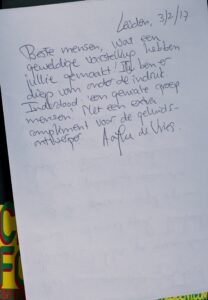 Leiden, 3/2/17
Beste mensen, Wat een
geweldige voorstelling hebben
jullie gemaakt! Ik ben er
diep van onder de indruk
Inderdaad een gewaagde groep
mensen! Met een extra
compliment voor de geluids-
ontwerper de Vries.